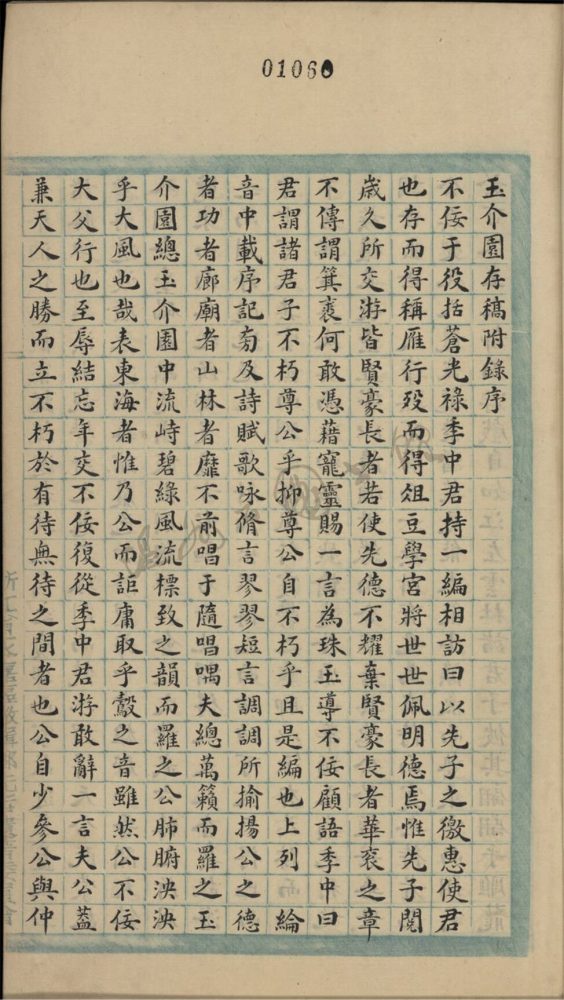 01060
玉介園存稿附錄序
不佞于役括蒼光祿季中君持一編相訪曰以先子之徼惠使君
也存而得稱雁行歿而得俎豆學宮將世世佩明德焉惟先子閱
歲久所交游皆賢豪長者若使先德不耀棄賢豪長者華衮之章
不傳謂箕裘何敢憑藉寵靈賜一言為珠玉導不佞顧語季中曰
君謂諸君子不朽尊公乎抑尊公自不朽乎且是編也上列而綸
音中載序記旁及詩賦歌咏脩言翏翏短言調調所揄揚公之德
者功者廊廟者山林者靡不前唱于隨唱喁夫總萬籟而羅之玉
介園總玉介園中流峙碧綠風流標致之韻而羅之公肺腑泱泱
乎大風也哉表東海者惟乃公而詎庸取乎鷇之音雖然公不佞
大父行也至辱結忘年交不佞復從季中君游敢辭一言夫公蓋
兼天人之勝而立不朽於有待無待之間者也公自少參公與仲